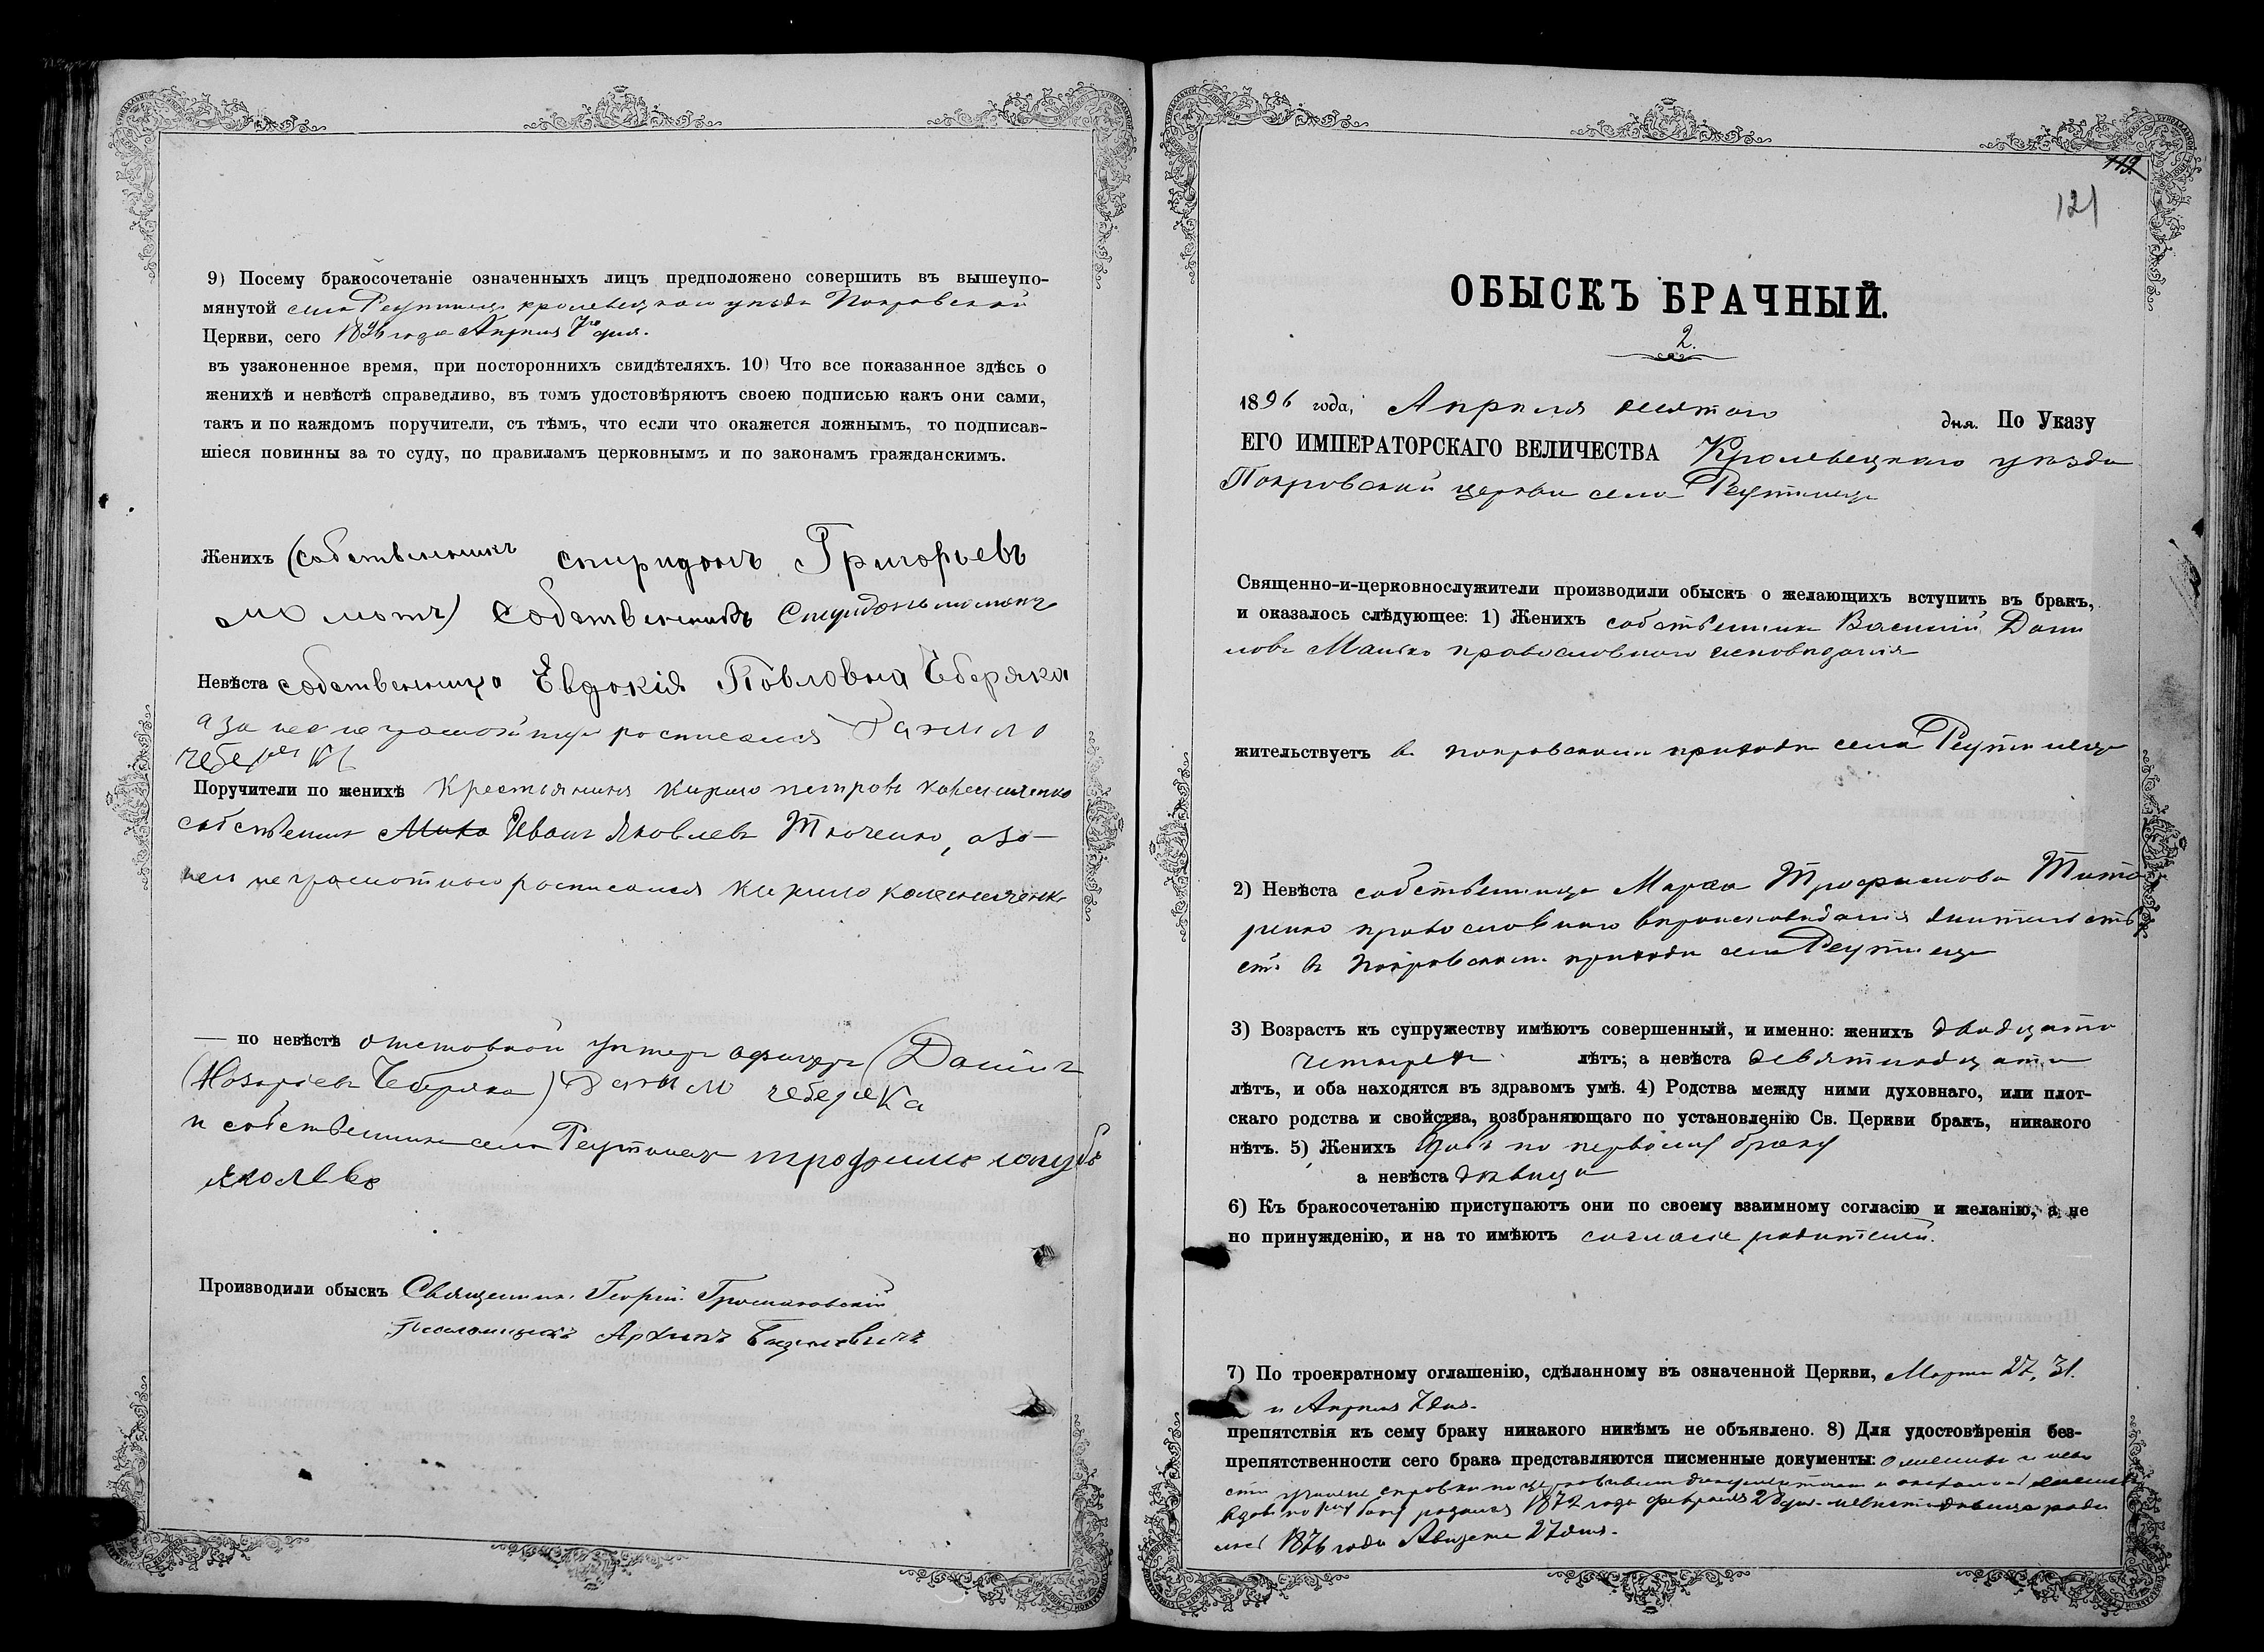 9) Посему бракосочетаніе означенныхъ лицъ предположено совершить въ вышеупо-
мянутой села Реутинецъ кролевецкаго уѣзда Покровской
Церкви, сего 1896 года Апрѣля 7го дня.
въ узаконенное время, при постороннихъ свидѣтеляхъ. 10) Что все показанное здѣсь о
женихѣ и невѣстѣ справедливо, въ томъ удостовѣряютъ своею подписью какъ они сами,
такъ и по каждомъ поручители, съ тѣмъ, что если что окажется ложнымъ, то подписав-
шіеся повинны за то суду, по правиламъ церковнымъ и по законамъ гражданскимъ.
Женихъ (собственникъ спиридонъ Григорьевъ
собственникъ Спиридонъ
Невѣста собственница Евдокія Повловна Чберяка
а за нее неграмотную росписался Данило
чеберяка
Поручители по женихѣ Крестьянинъ Кирило петровъ
собственникъ Иванъ Яковлевъ Ткаченко, а за
него неграмотного росписался Кирило
— по невѣстѣ отставной унтеръ офицеръ (Данiил
(Назаріевъ Чеберяка) Данило чеберяка
и собственникъ села Реутинецъ трофимъ
яковлевъ
Производили обыскъ Священникъ Георгій Громаковскій
Псаломщикъ Архипъ Базилевичъ
119
121
ОБЫСКЪ БРАЧНЫЙ.
2.
1896 года, Апрѣля десятого дня. По Указу
ЕГО ИМПЕРАТОРСКАГО ВЕЛИЧЕСТВА Кролевецкаго уѣзда
Покровской церкви села Реутинецъ
Священно-и-церковнослужители производили обыскъ о желающихъ вступить въ бракъ,
и оказалось слѣдующее: 1) Женихъ собственникъ Василій Дани
ловъ Манько православного исповѣданія
жительствуетъ въ покровскомъ приходѣ села Реутинецъ
2) Невѣста собственница Марѳа Трофимова Тито
ренко православного вѣроисповѣданія жительству
етъ въ Покровскомъ приходѣ села Реутинецъ
3) Возрастъ къ супружеству имѣютъ совершенный, и именно: женихъ двадцати
четырехъ лѣтъ; а невѣста девятнадцати
лѣтъ, и оба находятся въ здравомъ умѣ. 4) Родства между ними духовнаго, или плот-
скаго родства и свойства, возбраняющаго по установленію Св. Церкви бракъ, никакого
нѣтъ. 5) Женихъ вдовъ по первому браку
а невѣста дѣвица
6) Къ бракосочетанію приступаютъ они по своему взаимному согласію и желанію, а не
по принужденію, и на то имѣютъ согласіе родителей.
7) По троекратному оглашенію, сдѣланному въ означенной Церкви, Марта 27, 31.
и Апрѣля 7 дня.
препятствія къ сему браку никакого никѣмъ не объявлено. 8) Для удостовѣренія без-
препятственности сего брака представляются писменные документы: о женихѣ и невѣ
стѣ учинена справка по церковнымъ документамъ и оказалось женихъ
вдовъ по родился 1872 года февраля 28 дня. невѣста дѣвица роди
лась 1876 года Августа 27 дня.